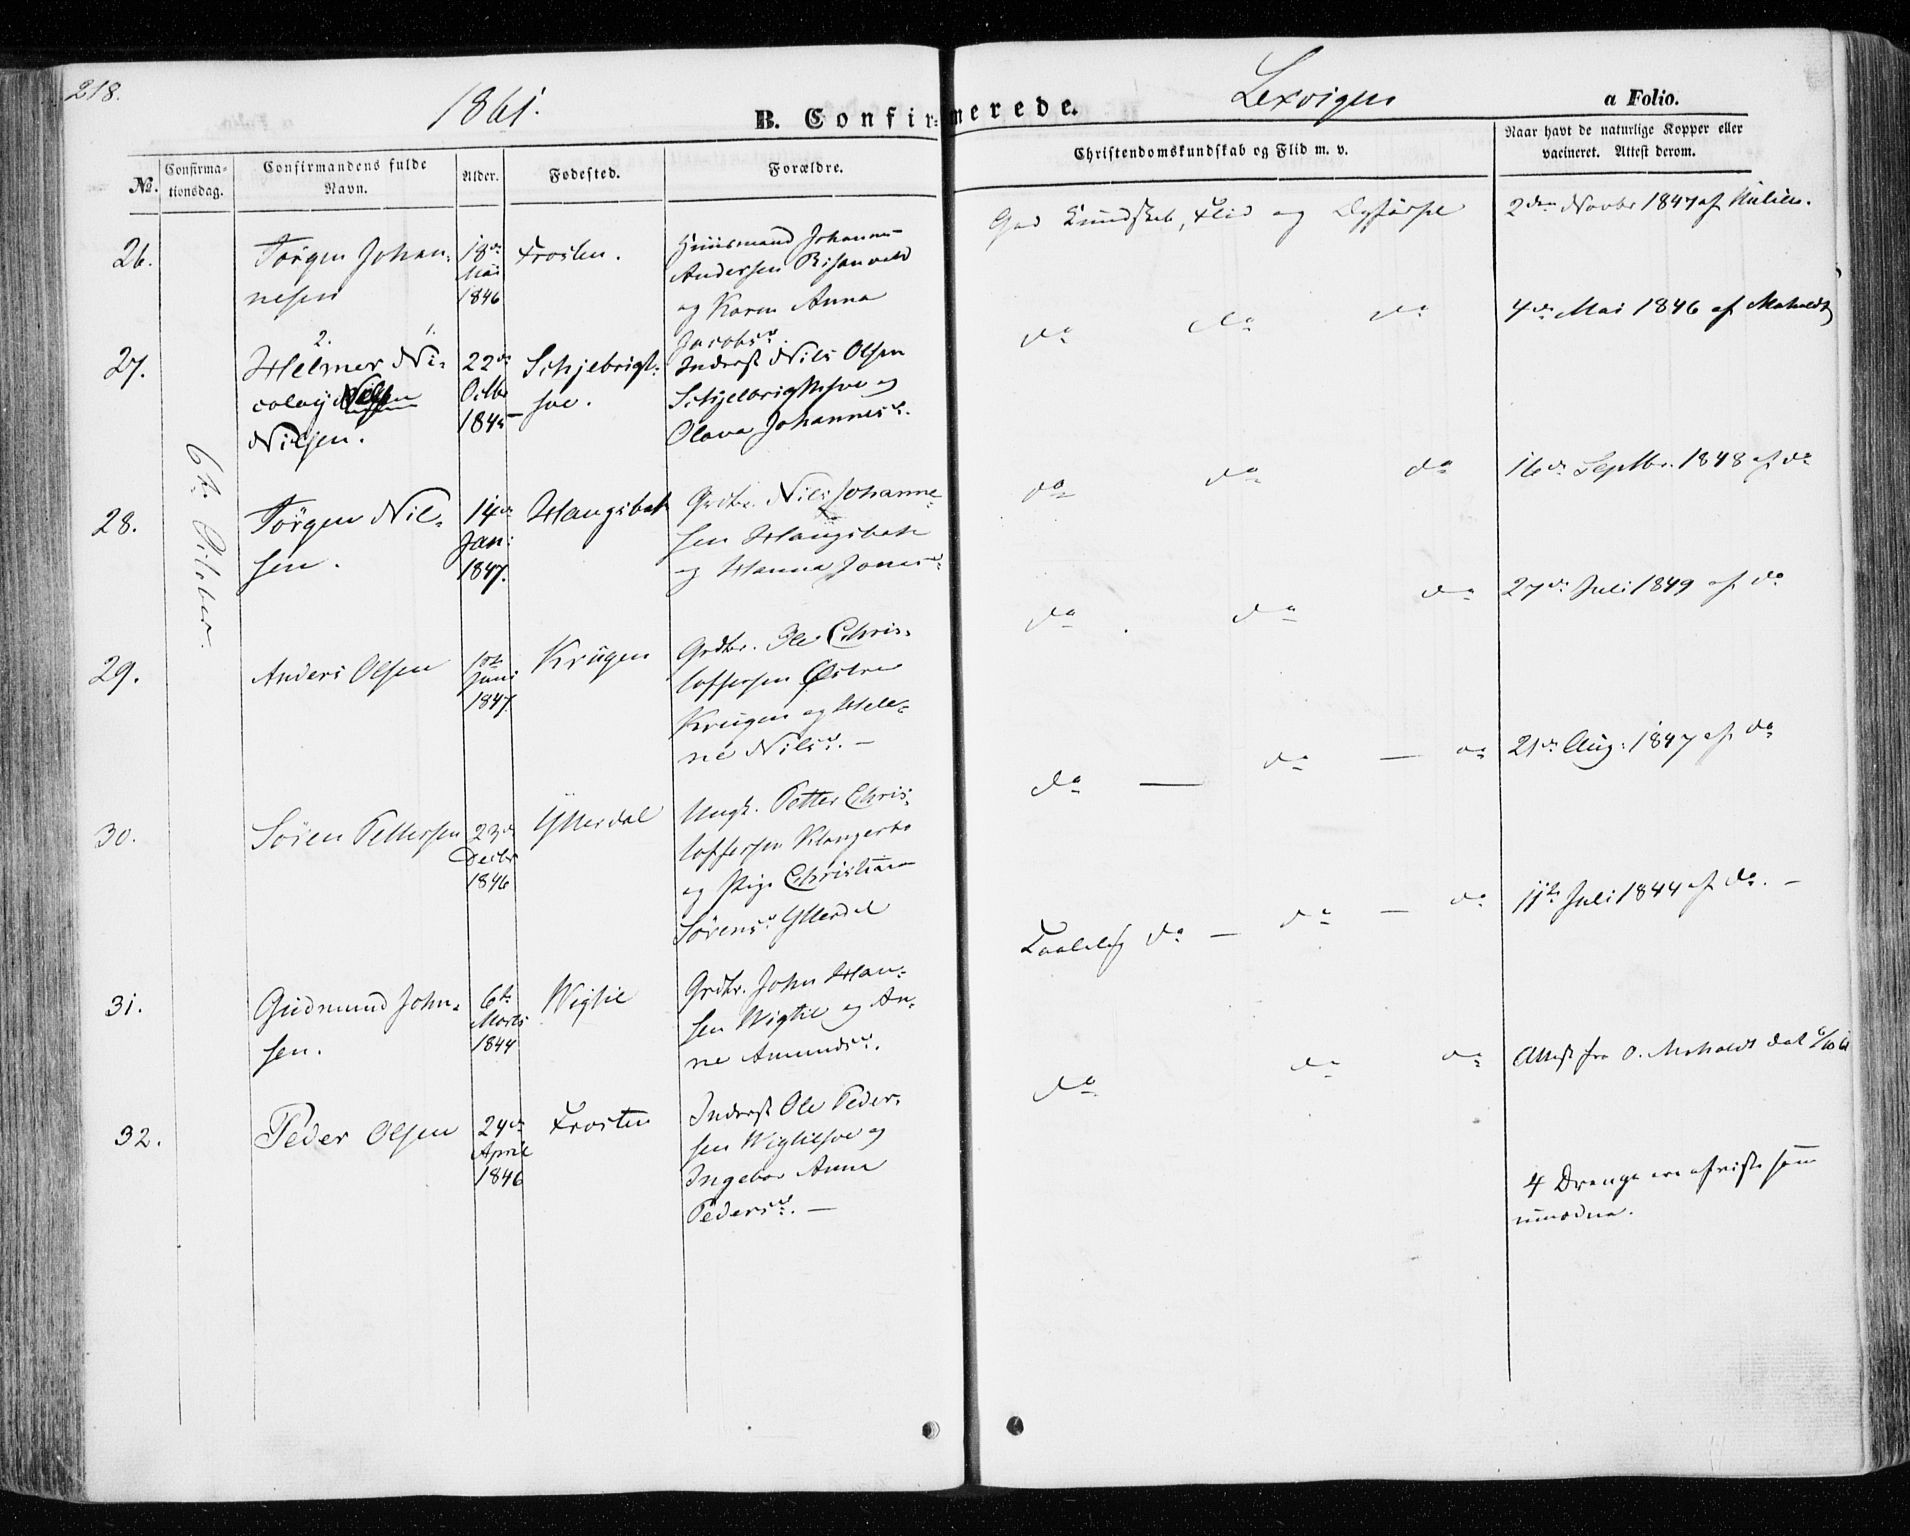 218.
1861.
B. Confirmerede.
Lexvigen
a Folio.
No.
Confirma-
tionsdag.
Confirmandens fulde
Navn.
Alder.
Fødested.
Forældre.
Christendomskundskab og Flid m. v.
Naar havt de naturlige Kopper eller
vaccineret. Attest derom.
6te October.
26.
Jørgen Johan-
nesen
18de
Mai
1846
Frosten.
Huusmand Johannes
Andersen
og Karen Anna
Jacobsd.
God Kundskab, Flid og Opførsel
2den Novbr 1847 af
27.
2. 1.
Helmer Ni-
colaij
Nilsen.
22de
Octbr
Schjebrigt-
sve.
Inderst Nils Olsen
Olava Johannesd.
do do do
4de Mai 1846 af
28.
Jørgen Nil-
sen.
14de
Jan:
1847.
Hangsbak
Grdbr. Nils Johanne-
sen Hangsbak
og Hanna Jonsd.
do do do
16de Septbr. 1848 af do
29.
Anders Olsen
Juni
1847.
Krügen
Grdbr. Ole Chris-
toffersen Østre
Krügen og Hele-
ne Nilsd. —
do do do
27de Juli 1849 af do
30.
Søren Pettersen
23de
Decbr
1846
Ytterdal
Ungk. Petter Chris-
toffersen
og Pige Christian
Sørensd. Ytterdal
do — do — do
21de Aug: 1847 af do
31.
Gudmund John-
sen.
6te
Marts
1844
Wigtil
Grdbr. John Han-
sen Wigtil og An-
ne Amundsd.
Taalelig do — do — do
11te Juli 1844 af do. —
32.
Peder Olsen
24de
April
1846
Frosten
Inderst Ole Peder-
sen Wigtilsve og
Ingebor Anna
Pedersd. —
do do do
Attest fra O. dat 6/10 61
4 Drenge ere afviste som
umodne.